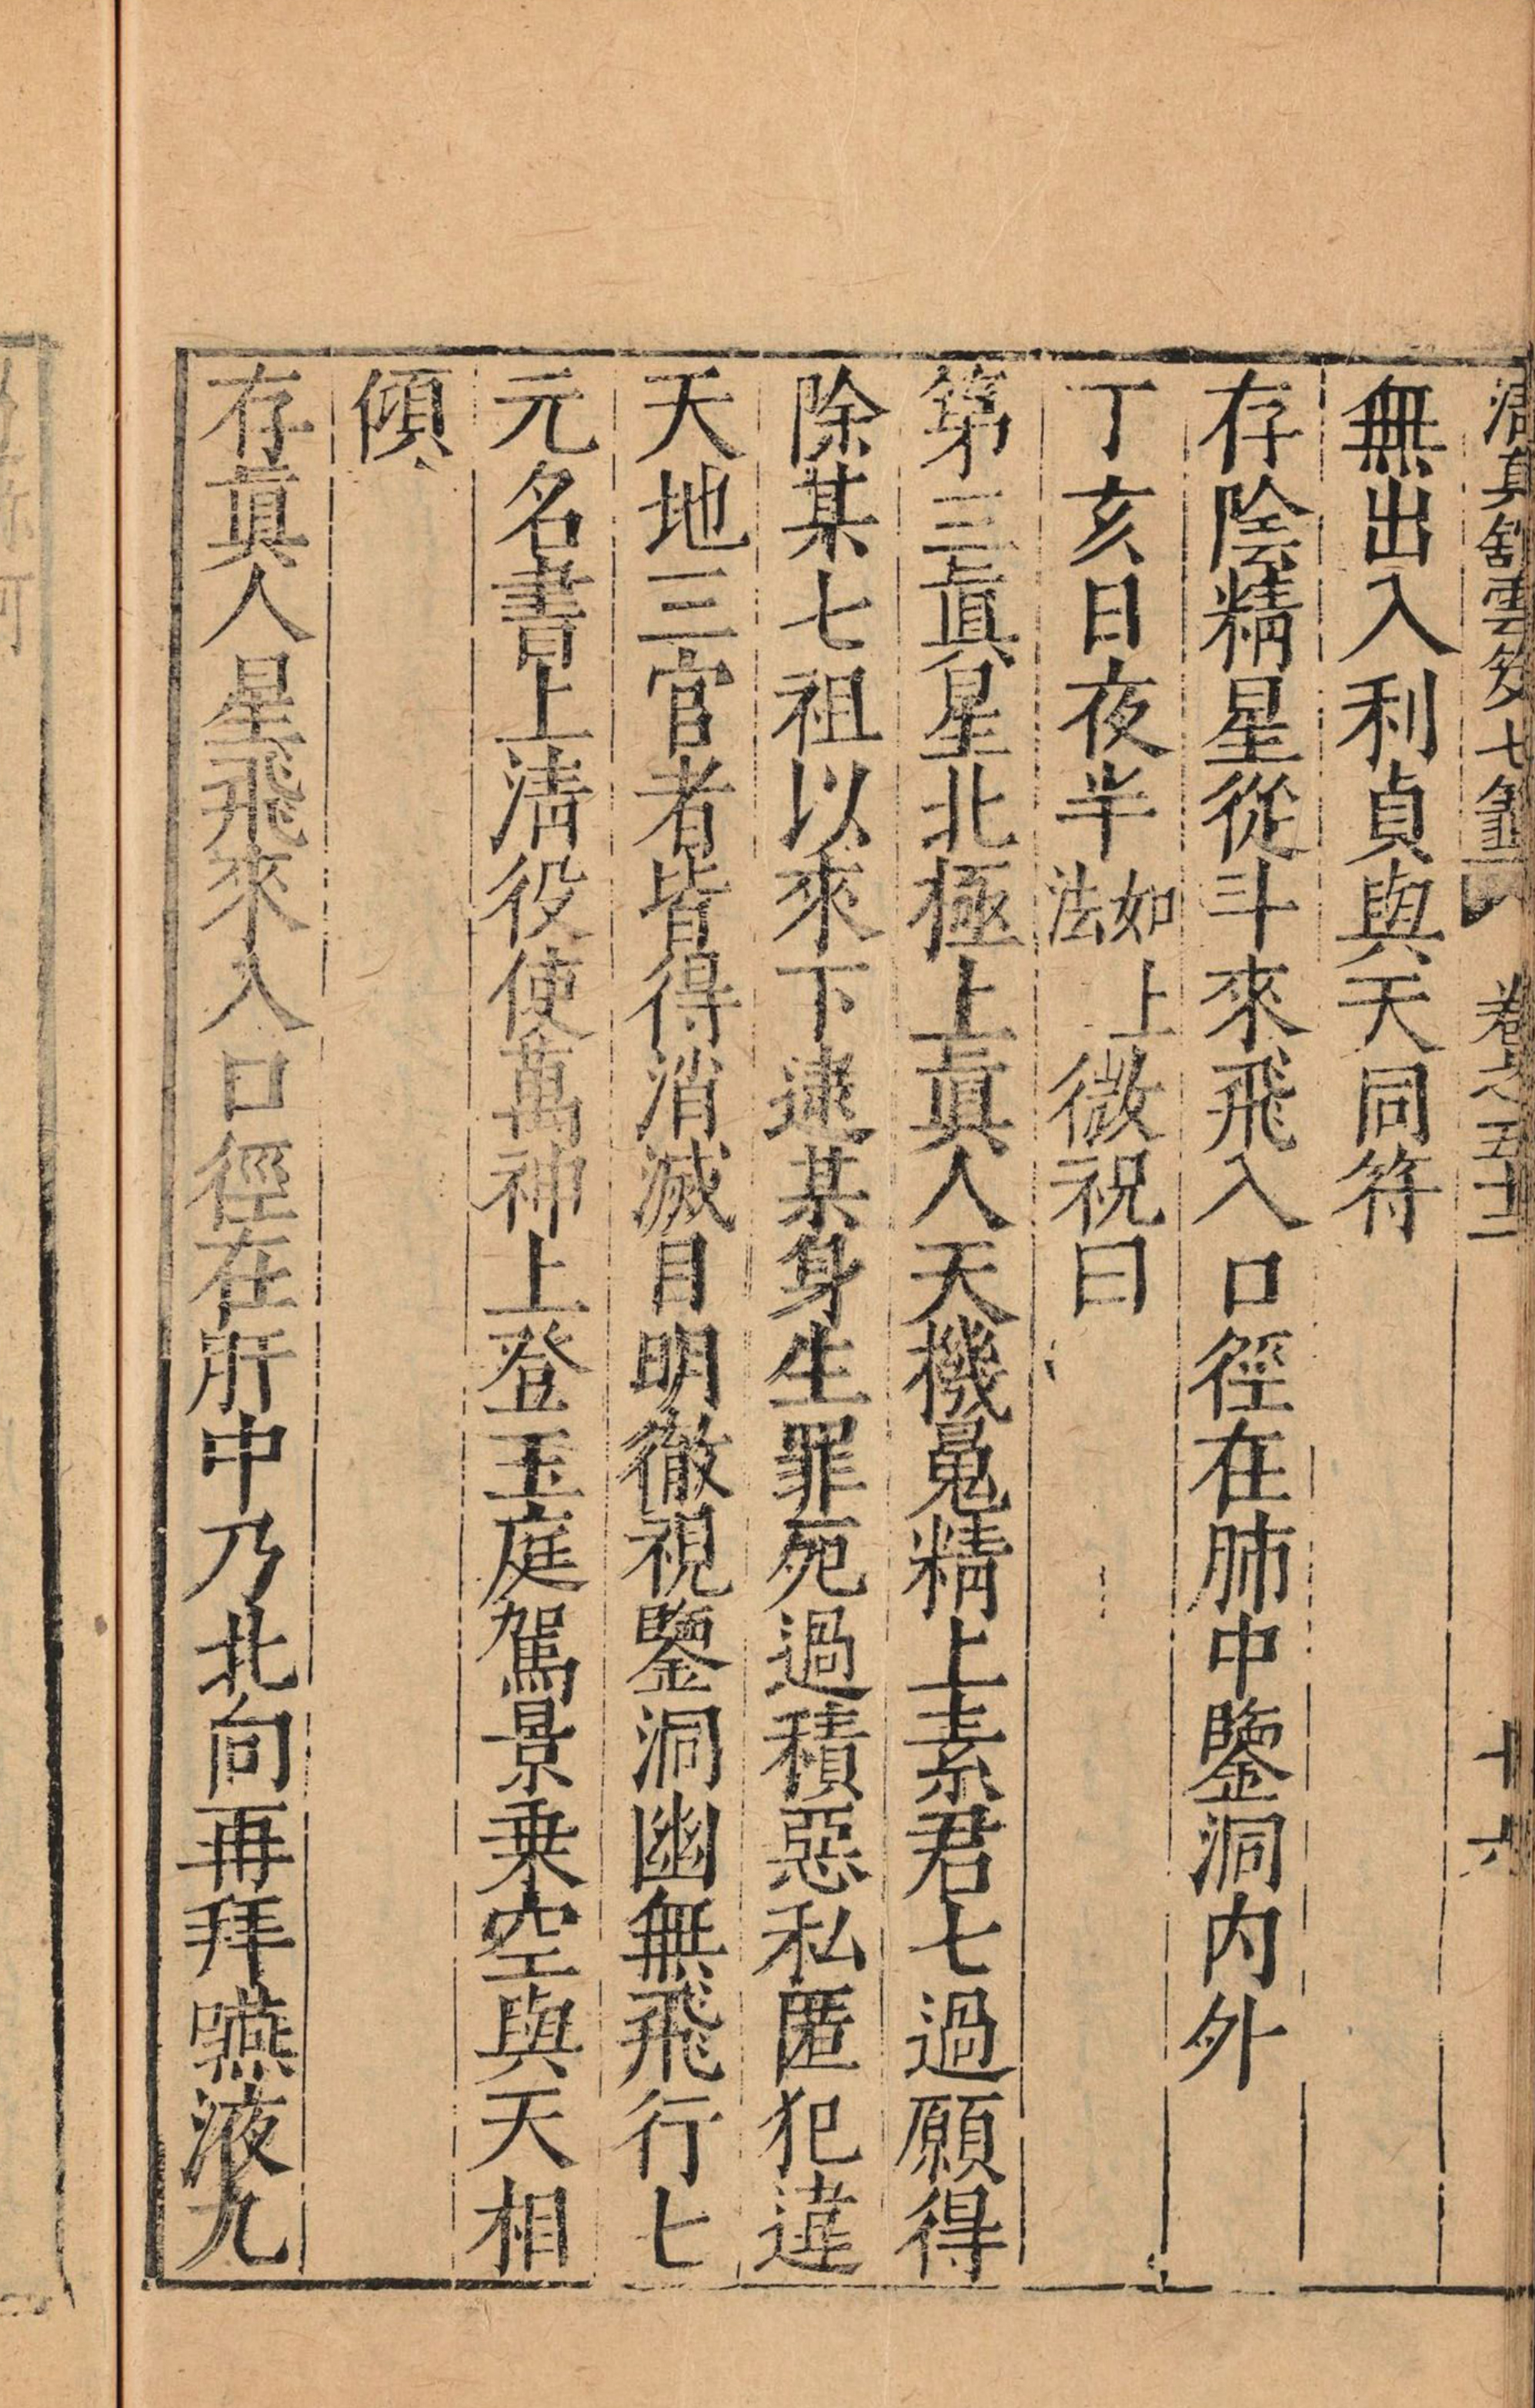 無出入利貞與天同符
存陰精星從斗來飛入口徑在肺中鑒洞内外
丁亥日夜半如上法微祝曰
第三眞星北極上眞人天機䰟精上素君七過願得
除某七祖以來下逮某身生罪死過積惡私匿犯違
天地三官者皆得消滅目明徹視鑒洞幽無飛行七
元名書上清役使萬神上登玉庭駕景乗空與天相
傾
存眞人星飛來入口徑在肝中乃北向再拜嚥液九